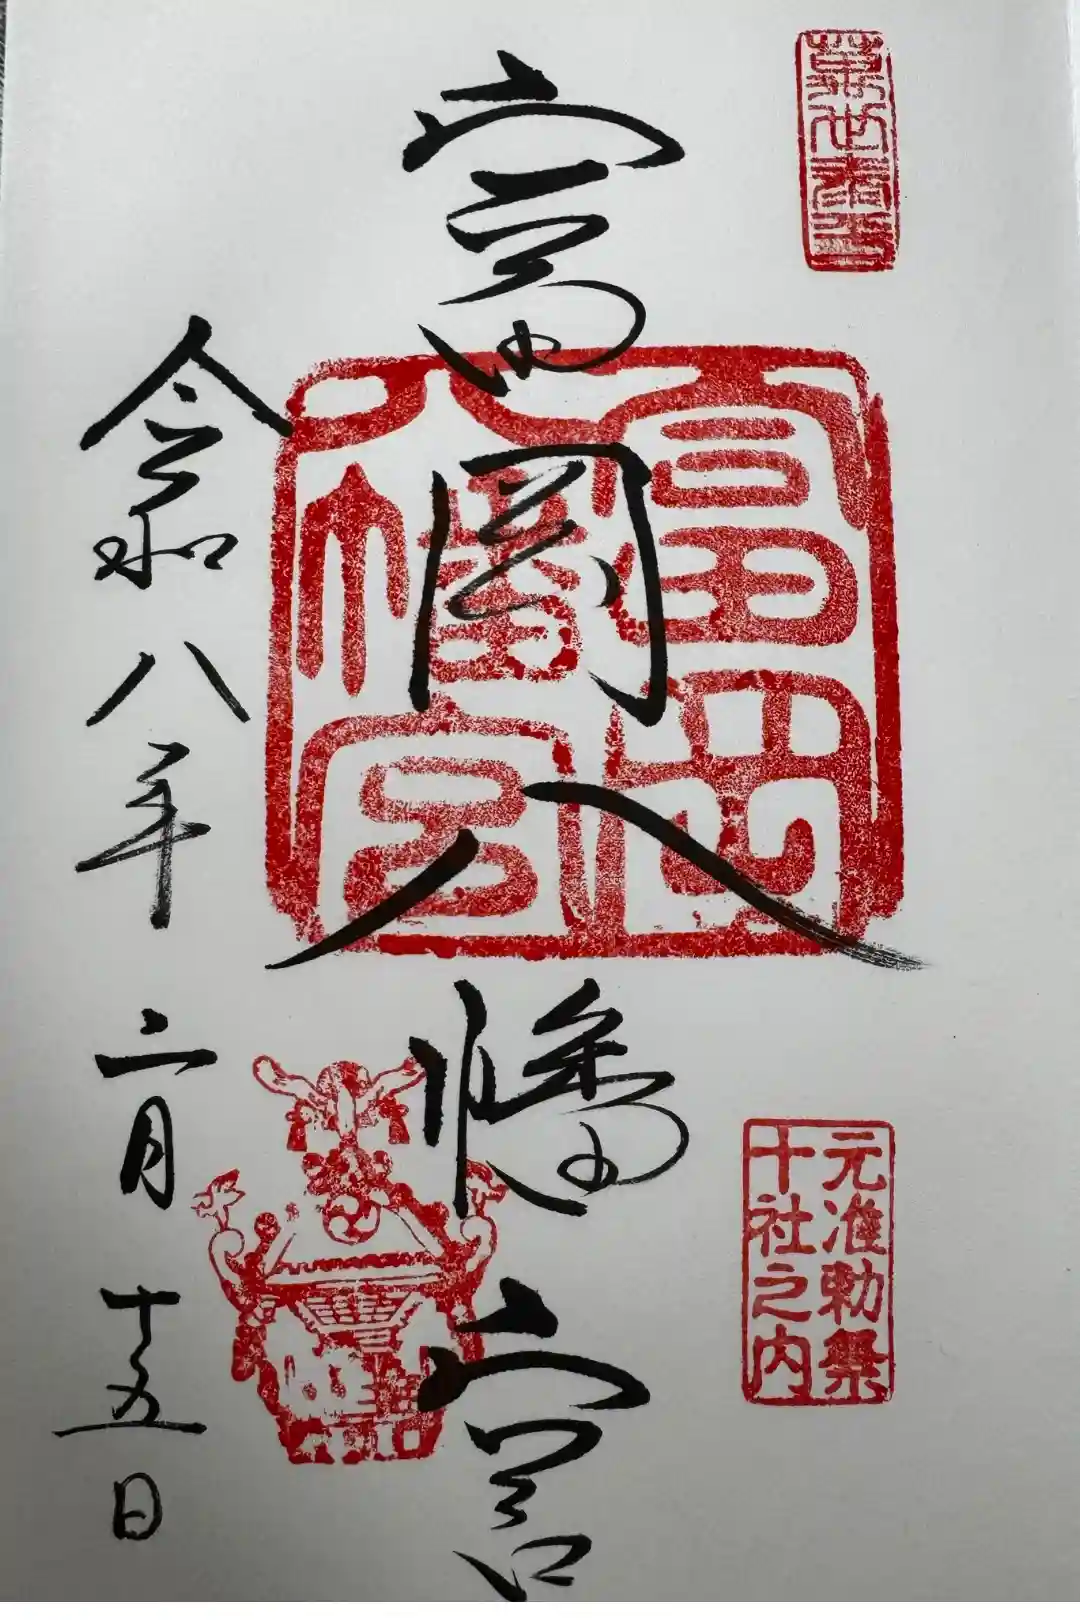 富岡八幡宮
富岡
八幡宮
元准勅祭
十社之内
令和八年二月十五日